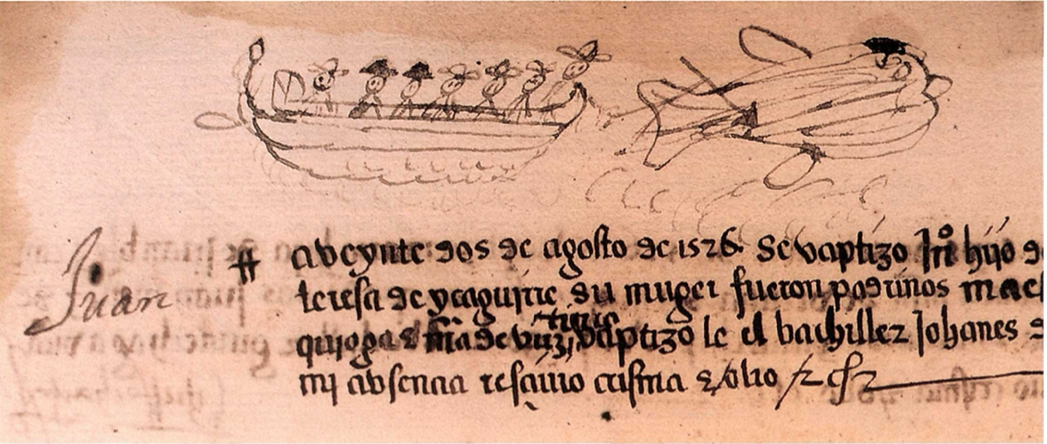 Juan
a veynte dos de agosto de 1526. Se vaptizo Jnº hijo d
teresa de ycaguirre su muger fueron padrinos mac
tinis
quiroga maria de vaptizo le el bachiller Johanes d
mi absencia resçiuio crisma z olio